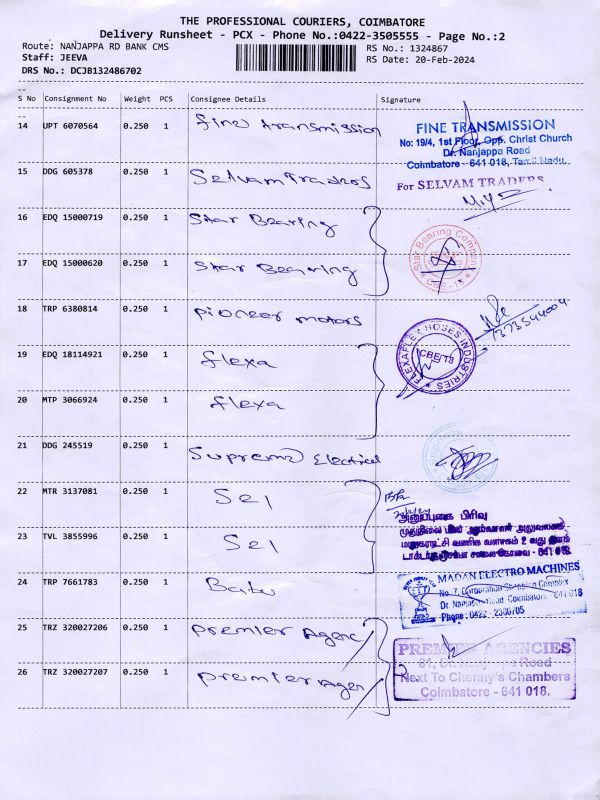 THE PROFESSIONAL COURIERS, COIMBATORE
Delivery Runsheet - PCX - Phone No.:0422-3505555 - Page No.:2
Route: NANJAPPA RD BANK CMS
RS No.: 1324867
Staff: JEEVA
RS Date: 20-Feb-2024
DRS No.: DCJB132486702
S No Consignment No Weight PCS Consignee Details Signature
14 UPT 6070564 0.250 1 fine transmission
FINE TRANSMISSION
No: 19/4, 1st Floor, Opp. Christ Church
Dr. Nanjappa Road
Coimbatore - 641 018, Tamil Nadu.
15 DDG 605378 0.250 1 Selvam Traders
For SELVAM TRADERS
16 EDQ 15000719 0.250 1 Star Bearing
Star Bearing Company
CBE-18
17 EDQ 15000620 0.250 1 Star Bearing
18 TRP 6380814 0.250 1 pioneer motors
7373544004
19 EDQ 18114921 0.250 1 flexa
FLEXAFLEX HOSES INDUSTRIES
CBE-18
20 MTP 3066924 0.250 1 flexa
21 DDG 245519 0.250 1 Supreme Electrical
22 MTR 3137081 0.250 1 Sel
அனுப்புகை பிரிவு
23 TVL 3855996 0.250 1 Sel
மாநகராட்சி வணிக வளாகம் 2 வது தளம்
24 TRP 7661783 0.250 1
MADAN ELECTRO MACHINES
No. 7, Corporation Shopping Complex
Dr. Nanjappa Road Coimbatore - 641 018
Phone : 0422 -
25 TRZ 320027206 0.250 1 Premier Agenc
PREMIER AGENCIES
81, Dr. Nanjappa Road
Next To Chenny's Chambers
Coimbatore - 641 018.
26 TRZ 320027207 0.250 1 Premier Agen